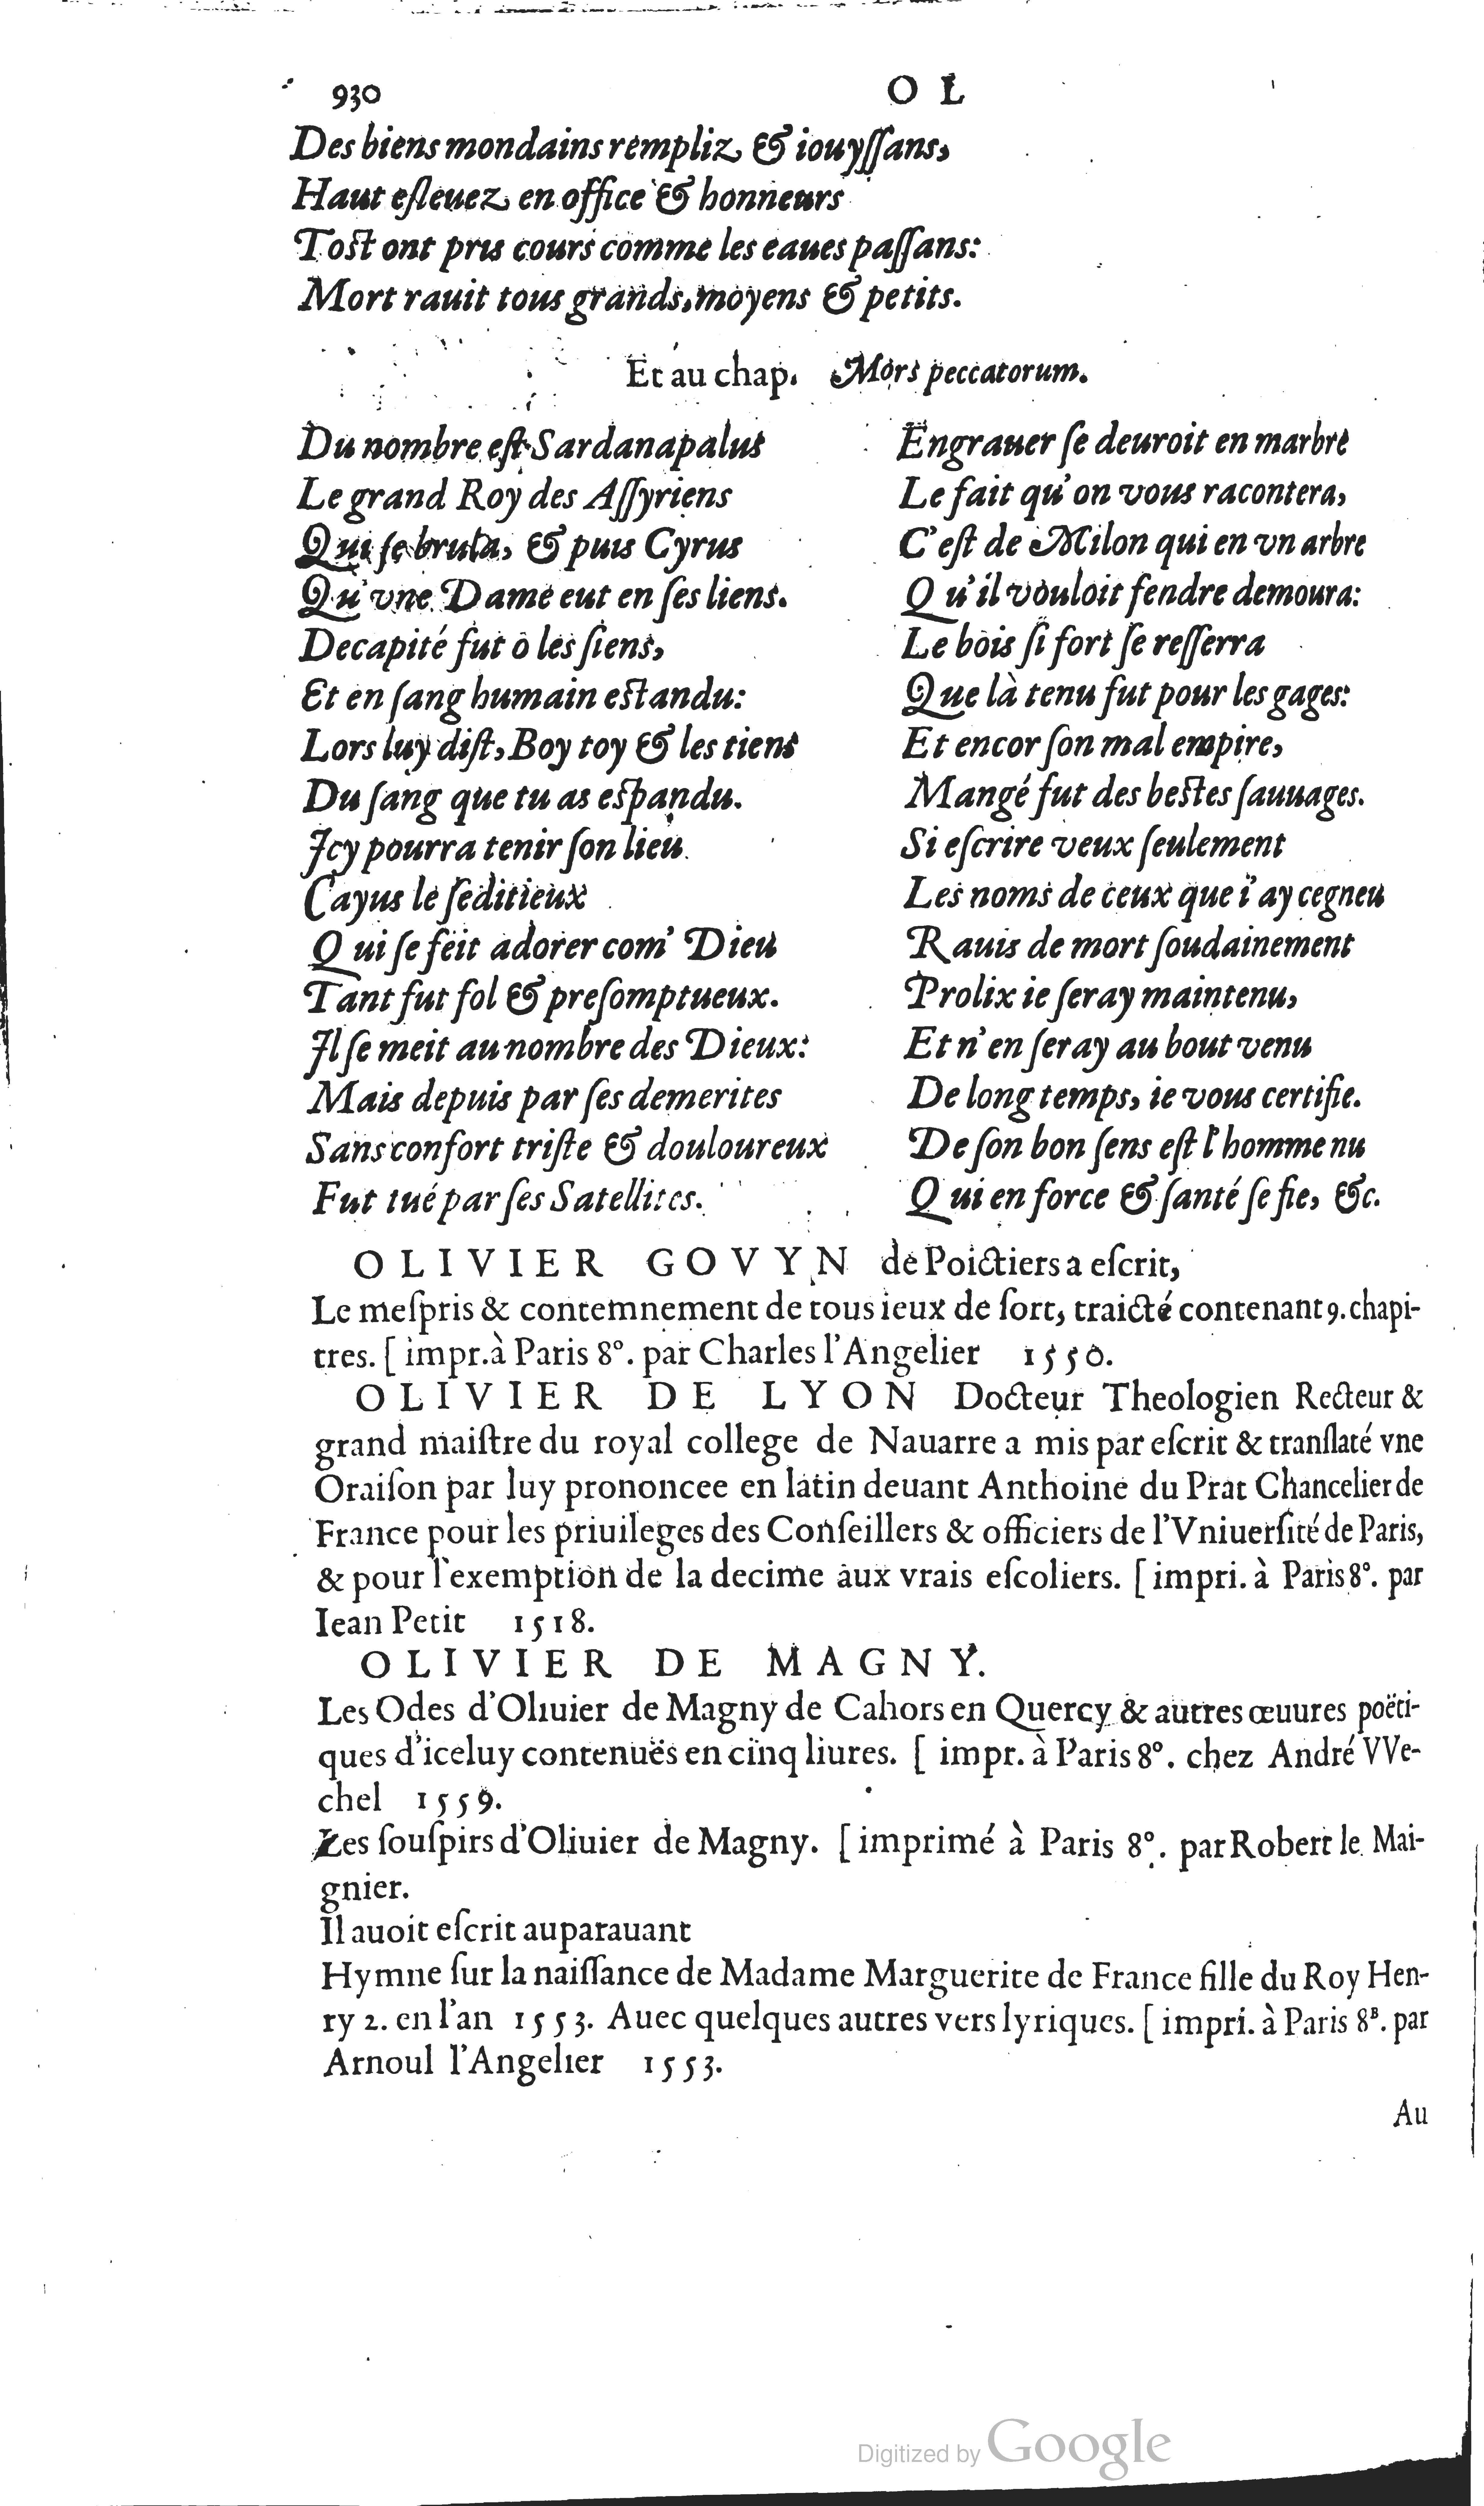 930 O L
Des biens mondains rempliz & iouyſſans,
Haut eſleuez en office & honneurs
Toſt ont pris cours comme les eaues paſſans:
Mort rauit tous grands, moyens & petits.
Et au chap. Mors peccatorum.
Du nombre eſt Sardanapalus
Le grand Roy des Aſſyriens
Qui ſe brula, & puis Cyrus
Qu'vne Dame eut en ſes liens.
Decapité fut ô les ſiens,
Et en ſang humain eſtandu:
Lors luy diſt, Boy toy & les tiens
Du ſang que tu as eſpandu.
Icy pourra tenir ſon lieu
Cayus le ſeditieux
Qui ſe feit adorer com' Dieu
Tant fut fol & preſomptueux.
Il ſe meit au nombre des Dieux:
Mais depuis par ſes demerites
Sans confort triſte & douloureux
Fut tué par ſes Satellites.
Engrauer ſe deuroit en marbre
Le fait qu'on vous racontera,
C'eſt de Milon qui en vn arbre
Qu'il vouloit fendre demoura:
Le bois ſi fort ſe reſſerra
Que là tenu fut pour les gages:
Et encor ſon mal empire,
Mangé fut des beſtes ſauuages.
Si eſcrire veux ſeulement
Les noms de ceux que i'ay cegneu
Rauis de mort ſoudainement
Prolix ie ſeray maintenu,
Et n'en ſeray au bout venu
De long temps, ie vous certifie.
De ſon bon ſens eſt l'homme nu
Qui en force & ſanté ſe fie, &c.
OLIVIER GOVYN de Poictiers a eſcrit,
Le meſpris & contemnement de tous ieux de ſort, traicté contenant 9. chapi-
tres. [impr. à Paris 8°. par Charles l'Angelier 1550.
OLIVIER DE LYON Docteur Theologien Recteur &
grand maiſtre du royal college de Nauarre a mis par eſcrit & tranſlaté vne
Oraiſon par luy prononcee en latin deuant Anthoine du Prat Chancelier de
France pour les priuileges des Conſeillers & officiers de l'Vniuerſité de Paris,
& pour l'exemption de la decime aux vrais eſcoliers. [impri. à Paris 8°. par
Iean Petit 1518.
OLIVIER DE MAGNY.
Les Odes d'Oliuier de Magny de Cahors en Quercy & autres œuures poëti-
ques d'iceluy contenuës en cinq liures. [impr. à Paris 8°. chez André VVe-
chel 1559.
Les ſouſpirs d'Oliuier de Magny. [imprimé à Paris 8°. par Robert le Mai-
gnier.
Il auoit eſcrit auparauant
Hymne ſur la naiſſance de Madame Marguerite de France fille du Roy Hen-
ry 2. en l'an 1553. Auec quelques autres vers lyriques. [impri. à Paris 8°. par
Arnoul l'Angelier 1553.
Au
Digitized by Google